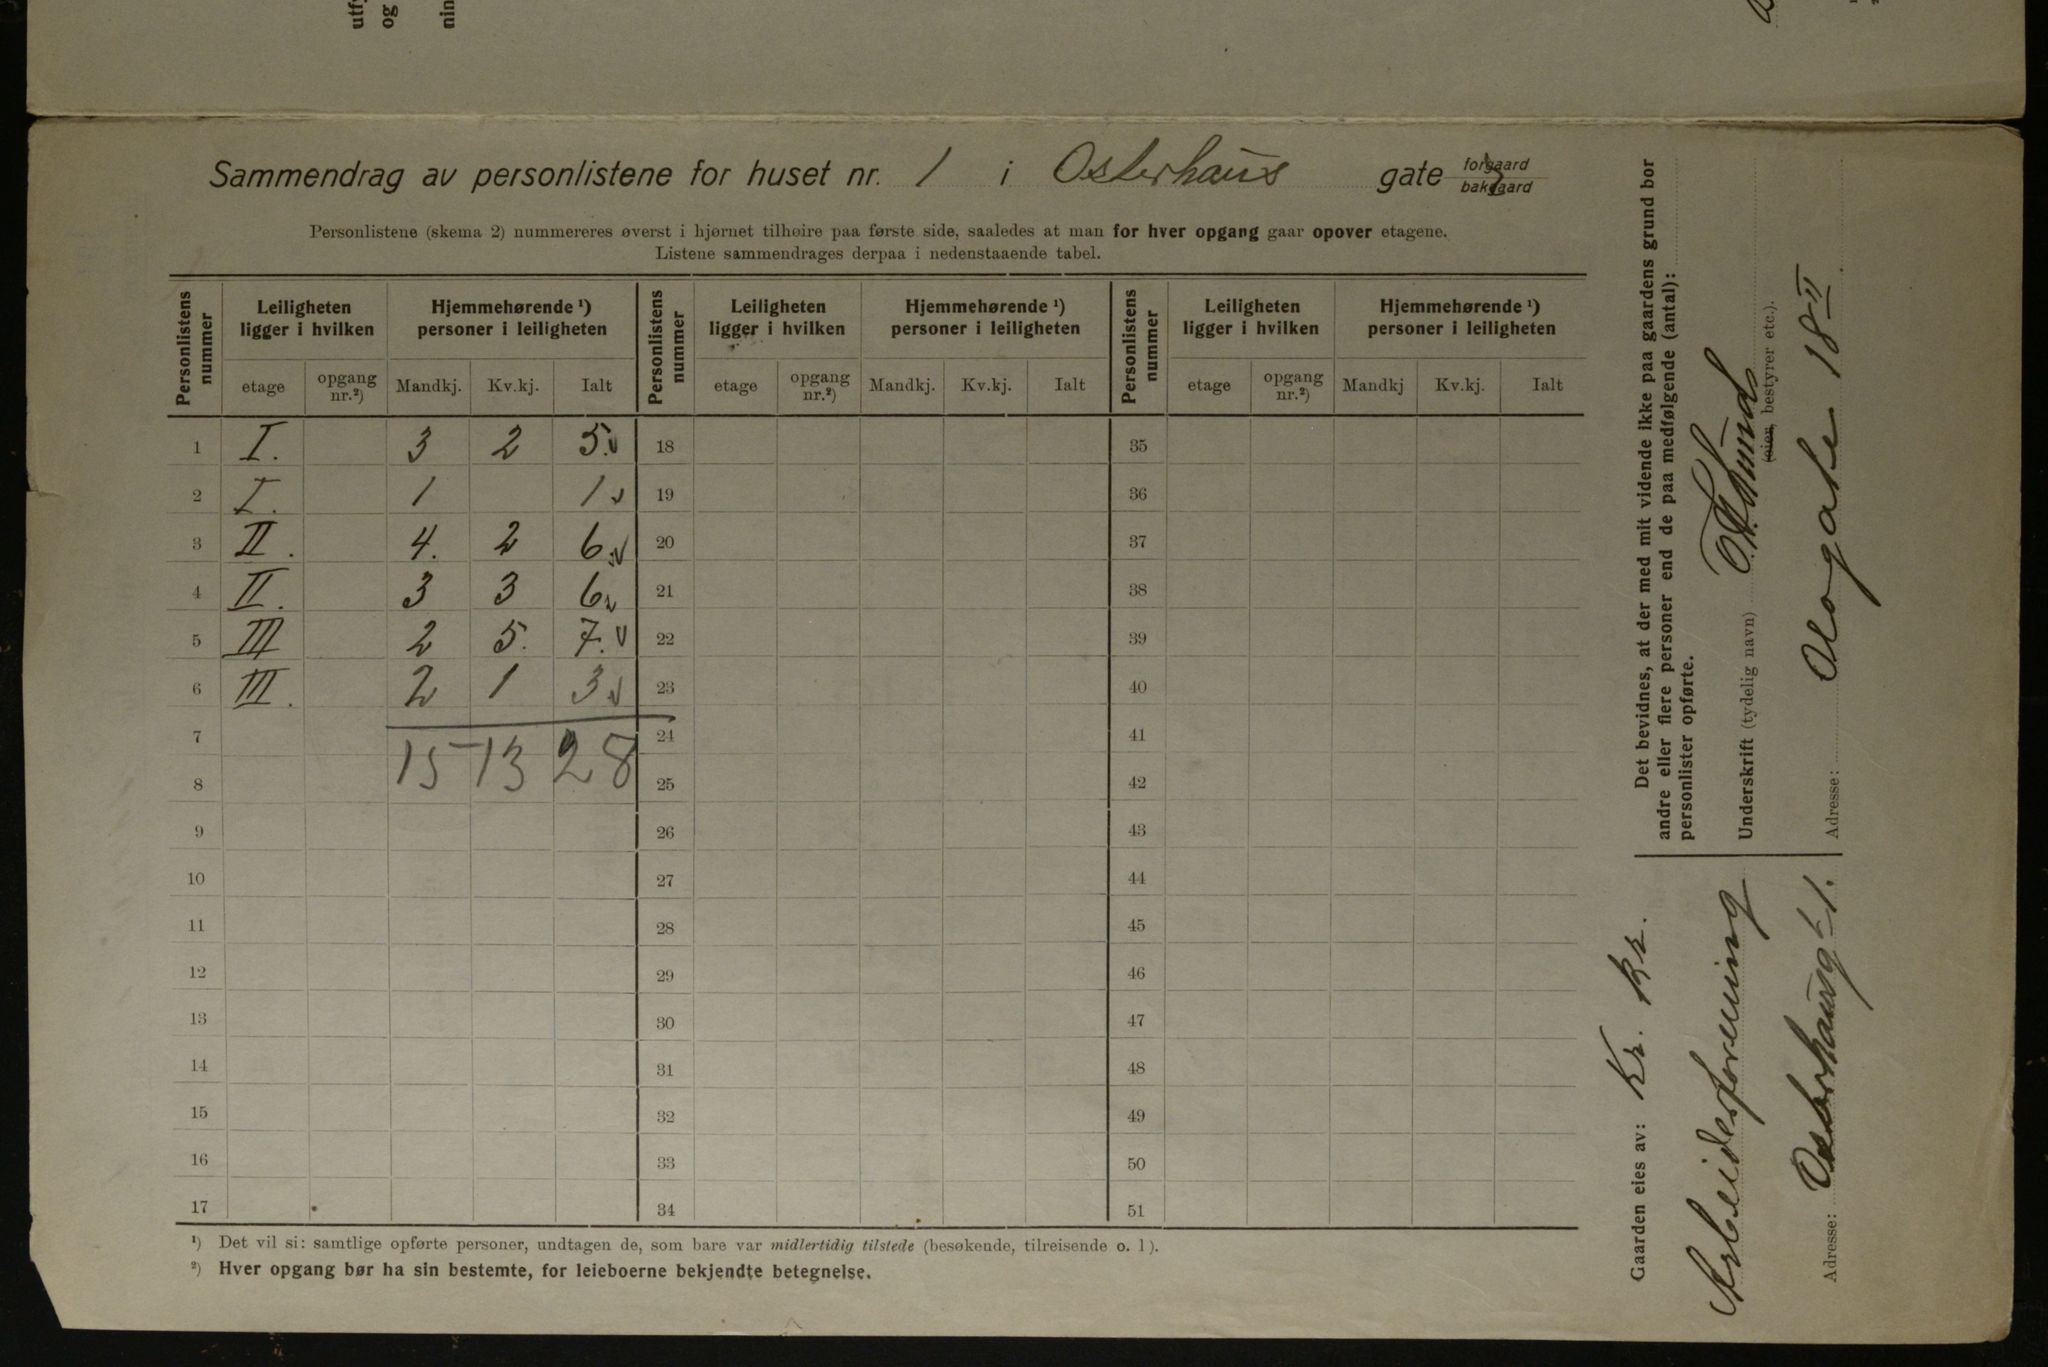 Sammendrag av personlistene for huset nr. 1 i Osterhaus gate forgaard bakgaard
Personlistene (skema 2) nummereres øverst i hjørnet tilhøire paa første side, saaledes at man for hver opgang gaar opover etagene.
Listene sammendrages derpaa i nedenstaaende tabel.
Personlistens nummer | Leiligheten ligger i hvilken | Hjemmehørende ¹) personer i leiligheten | Personlistens nummer | Leiligheten ligger i hvilken | Hjemmehørende ¹) personer i leiligheten | Personlistens nummer | Leiligheten ligger i hvilken | Hjemmehørende ¹) personer i leiligheten
etage | opgang nr.²) | Mandkj. | Kv.kj. | Ialt | etage | opgang nr.²) | Mandkj. | Kv.kj. | Ialt | etage | opgang nr.²) | Mandkj | Kv.kj. | Ialt
1 I. 3 2 5. 18 35
2 I. 1 1 19 36
3 II. 4. 2 6. 20 37
4 II. 3 3 6 21 38
5 III 2 5. 7. 22 39
6 III. 2 1 3 23 40
7 24 41
15 13 28
8 25 42
9 26 43
10 27 44
11 28 45
12 29 46
13 30 47
14 31 48
15 32 49
16 33 50
17 34 51
¹) Det vil si: samtlige opførte personer, undtagen de, som bare var midlertidig tilstede (besøkende, tilreisende o. l).
²) Hver opgang bør ha sin bestemte, for leieboerne bekjendte betegnelse.
Det bevidnes, at der med mit vidende ikke paa gaardens grund bor
andre eller flere personer end de paa medfølgende (antal):
personlister opførte.
Underskrift (tydelig navn)
(eier, bestyrer etc.).
Adresse: Mogate 18 II
Gaarden eies av: Kr. Kr.
Arbeidesforening
Adresse: Osterhausgt 1.